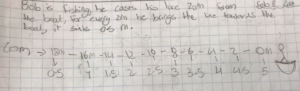 Bob is fishing he cases his line 20m from the
the boat, for every 2m he brings the line towards the
boat, it sinks 0.5 m.
(m) → 18m - 16m - 14 - 12 - 10 - 8 - 6 - 4 - 2 - 0m
0.5 1 1.5 2 2.5 3 3.5 4 4.5 5